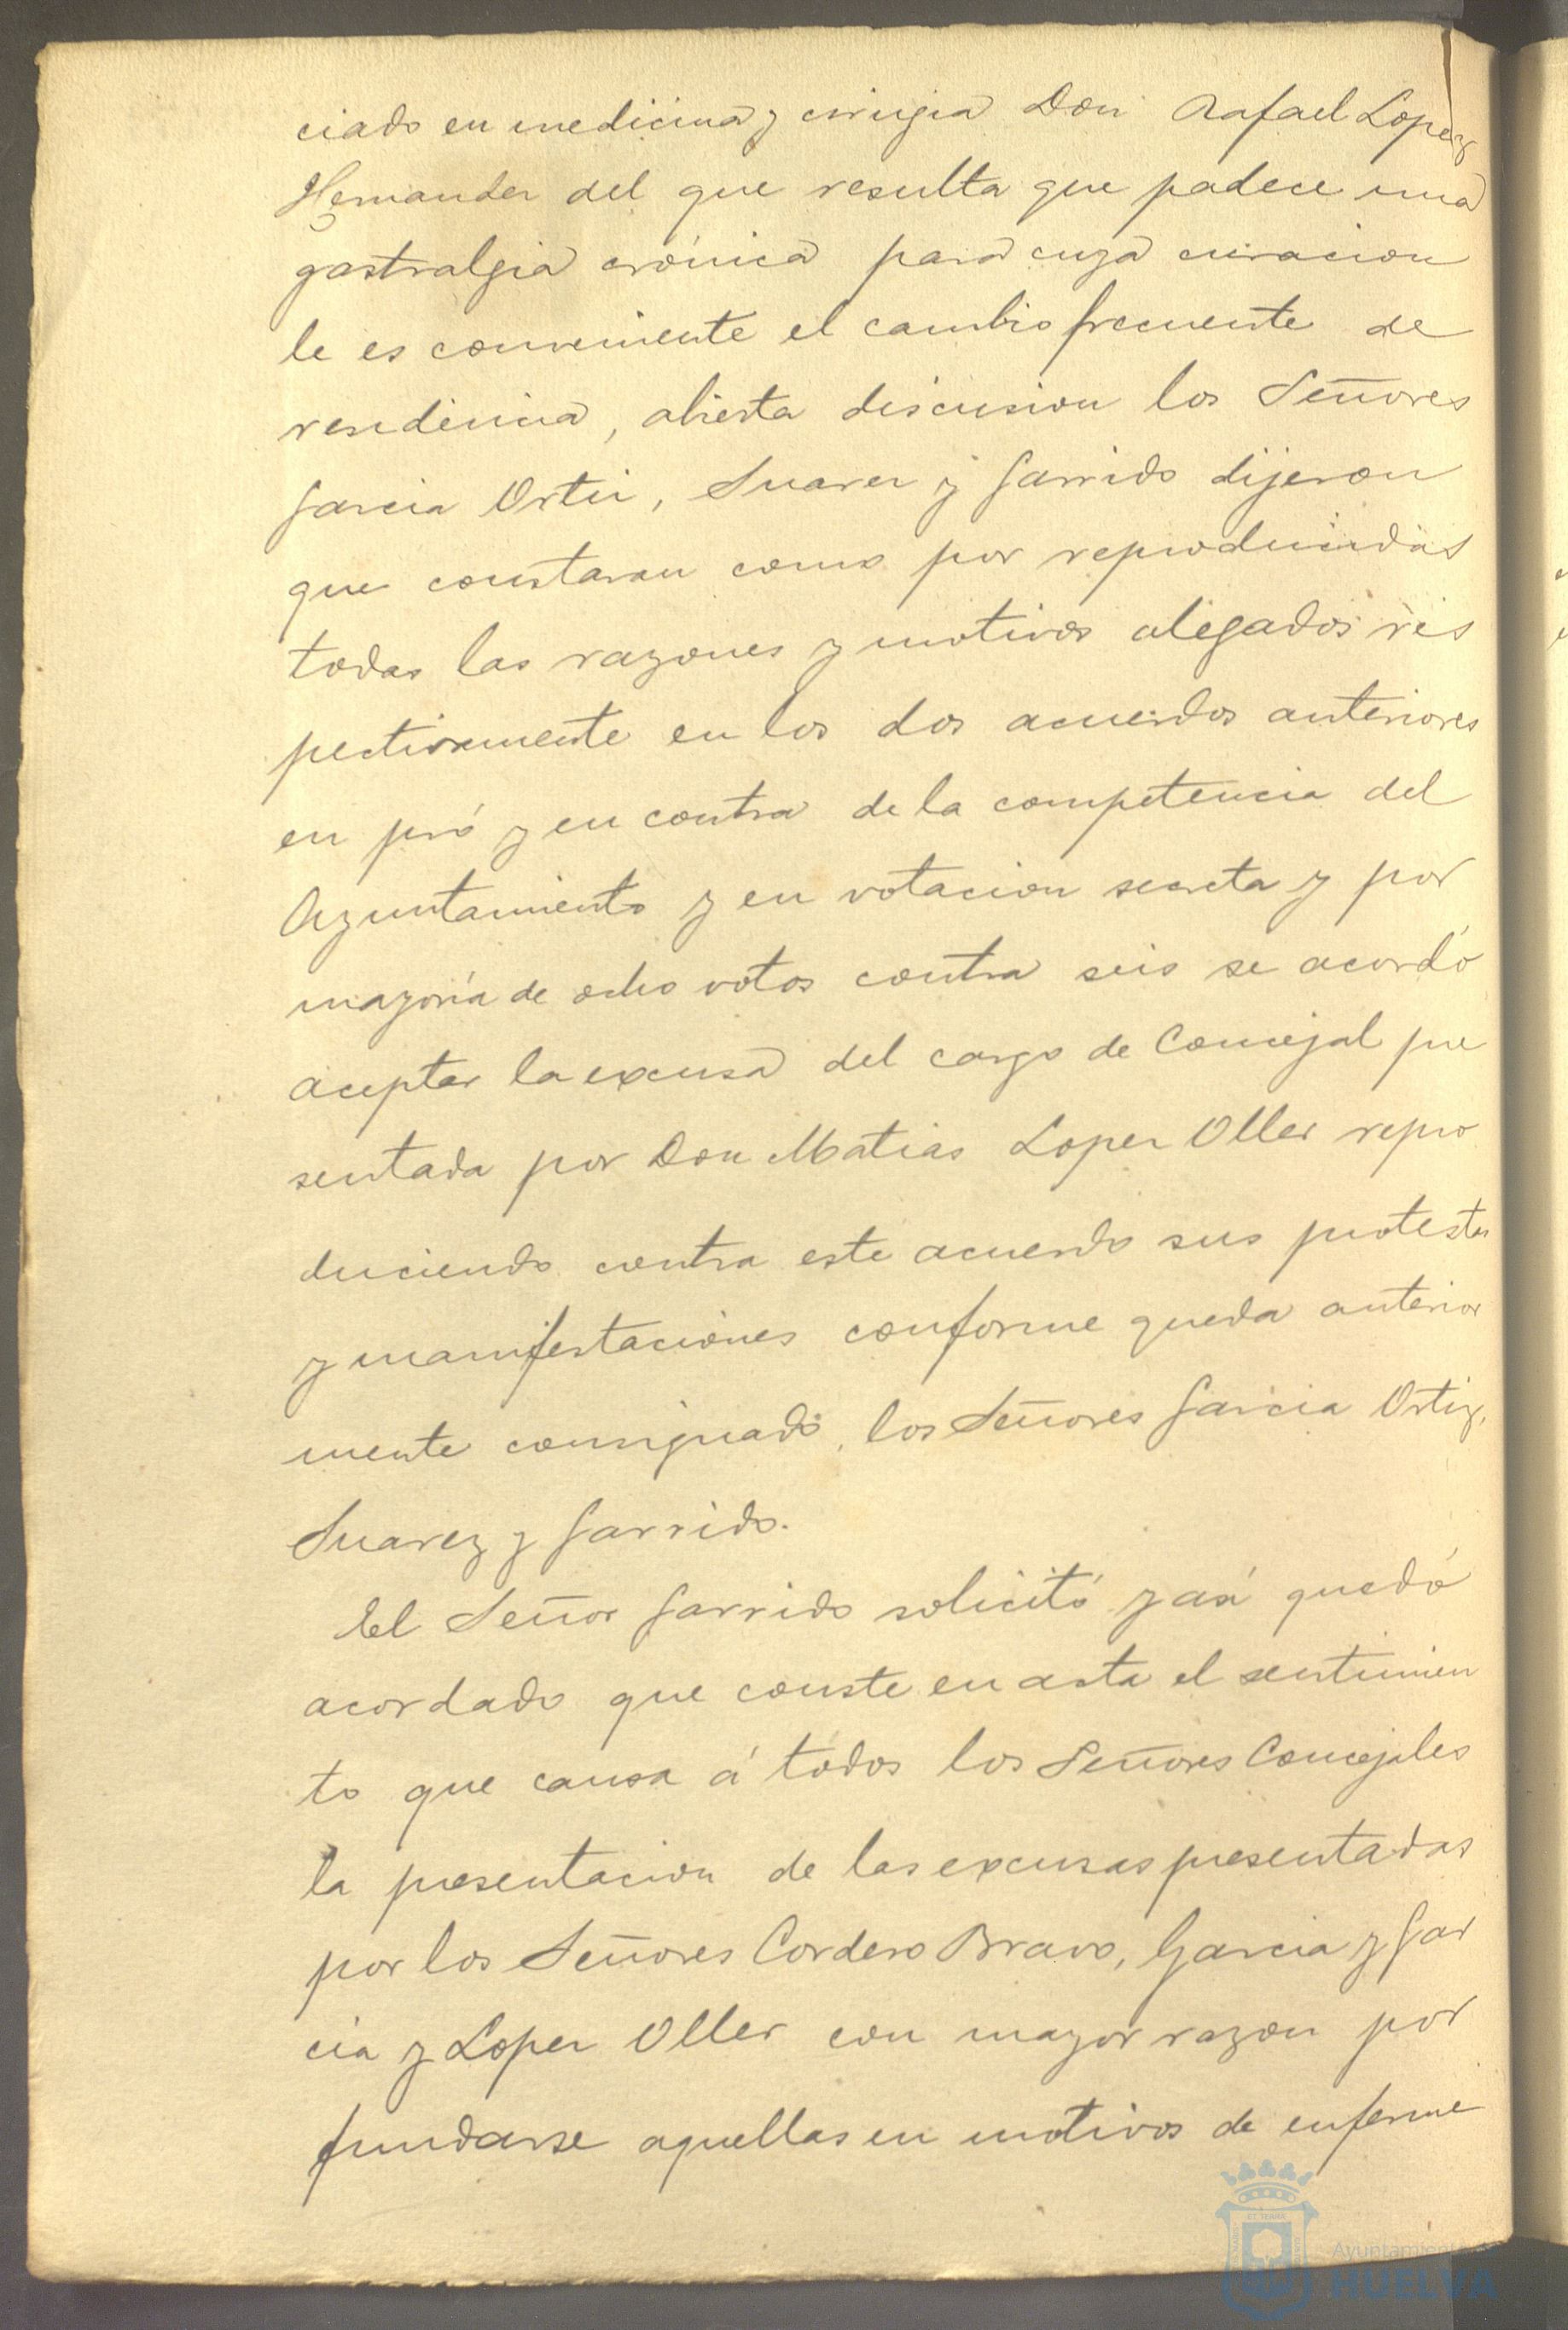 ciado en medicina y cirugia Don Rafael Lopez
Hernandez del que resulta que padece una
gastralgia crónica para cuya curacion
le es conveniente el cambio frecuente de
residencia, abierta discusion los Señores
Garcia Ortiz, Suarez y Garrido dijeron
que constaran como por reproducidas
todas las razones y motivos alegados res
pectivamente en los dos acuerdos anteriores
en pró y en contra de la competencia del
Ayuntamiento y en votacion secreta y por
mayoría de ocho votos contra seis se acordó
aceptar la excusa del cargo de Concejal pre
sentada por Don Matias Lopez Oller repro
duciendo contra este acuerdo sus protestas
y manifestaciones conforme queda anterior
mente consignado, los Señores Garcia Ortiz,
Suarez y Garrido.
El Señor Garrido solicitó y asi quedó
acordado que conste en acta el sentimien
to que causa á todos los Señores Concejales
la presentacion de las excusas presentadas
por los Señores Cordero Bravo, Garcia y Gar
cia y Lopez Oller con mayor razon por
fundarse aquellas en motivos de enferme
Ayuntamiento
HUELVA